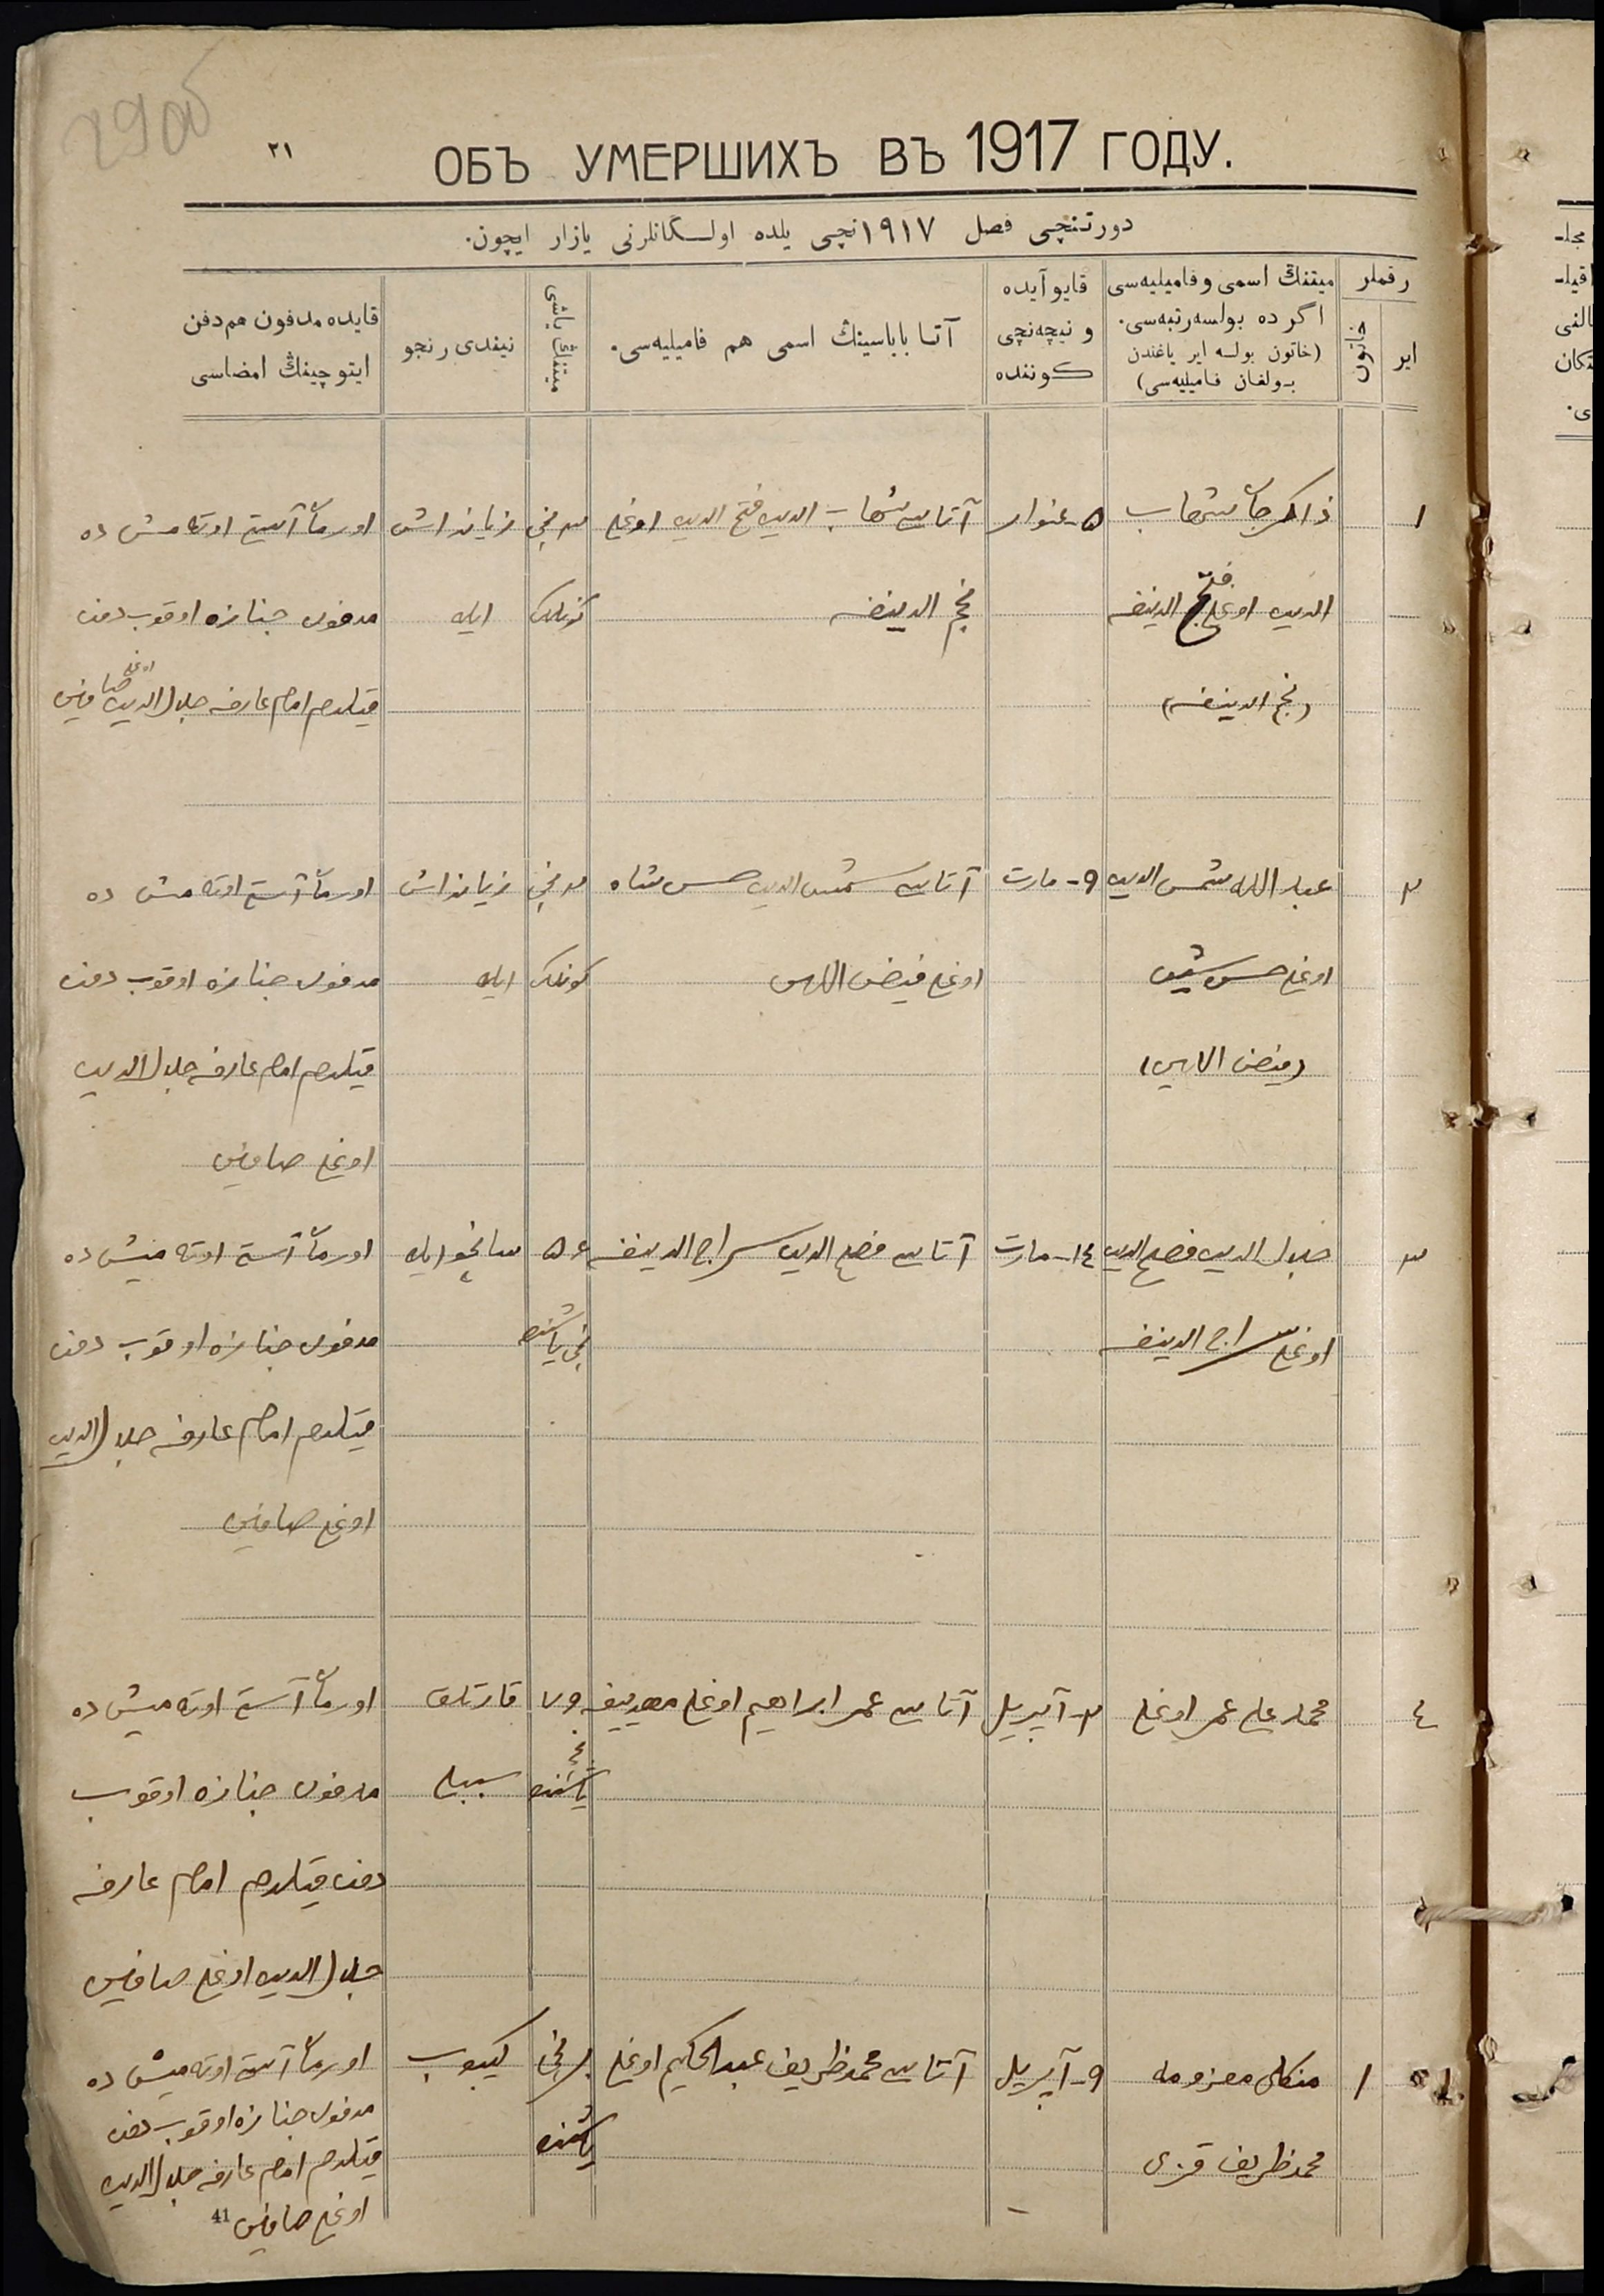 290б
٢١
ОБЪ УМЕРШИХЪ ВЪ 1917 ГОДУ.
دورتنچی فصل ١٩١٧نچی یلده اولـگانلرنی یازار ایچون.
رقملر
ایر
خاتون
میتنڭ اسمی و فامیلیه‌سی
اگر ده بولسه رتبه‌سی.
(خاتون بولسه ایر یاغندن
بـولغان فامیلیه‌سی)
قایو آیده
و نیچه‌نچی
كوننده
آتـا باباسینڭ اسمی هم فامیلیه‌سی.
میتنڭ یاشی
نیندی رنجو
قایده مدفون هم دفن
ایتوچینڭ امضاسی
١
ذاكرجان شهاب
الدین اوغلی فتح الدینف
(نجم الدینف)
٥-غنوار
آتاسی شهاب الدین فتح الدین اوغلی
نجم الدینف
٣ نچی
كونلك
زیانداش
ایله
اورمان آستی اوته‌مش ده
مدفون جنازه اوقوب دفن
قیلدم امام عارف جلال الدین اوغلی صافین
٢
عبد الله شمس الدین
اوغلی حسن شین
(فیض اللهین)
٩-مارت
آتاسی شمس الدین حسن شاه
اوغلی فیض اللهین
٣ نچی
كونلك
زیانداش
ایله
اورمان آستی اوته‌مش ده
مدفون جنازه اوقوب دفن
قیلدم امام عارف جلال الدین
اوغلی صافین
٣
جلال الدین فصلح الدین
اوغلی سراج الدینف
١٤-مارت
آتاسی فصلح الدین سراج الدینف
٥٤
نچی یاشنده
سانچو ایله
اورمان آستی اوته‌میش ده
مدفون جنازه اوقوب دفن
قیلدم امام عارف جلال الدین
اوغلی صافین
٤
محمد علی عمر اوغلی
٣-آپریل
آتاسی عمر ابراهیم اوغلی
٧٩
نچی
یاشنده
قارتلق
سببلی
اورمان آستی اوته‌میش ده
مدفون جنازه اوقوب
دفن قیلدم امام عارف
جلال الدین اوغلی صافین
١
منكلی معزومه
محمدظریف قزی
٩-آپریل
آتاسی محمدظریف عبدالحكیم اوغلی
١ نچی
یاشنده
كیبوب
اورمان آستی اوته‌میش ده
مدفون جنازه اوقوب دفن
قیلدم امام عارف جلال الدین
اوغلی صافین
41